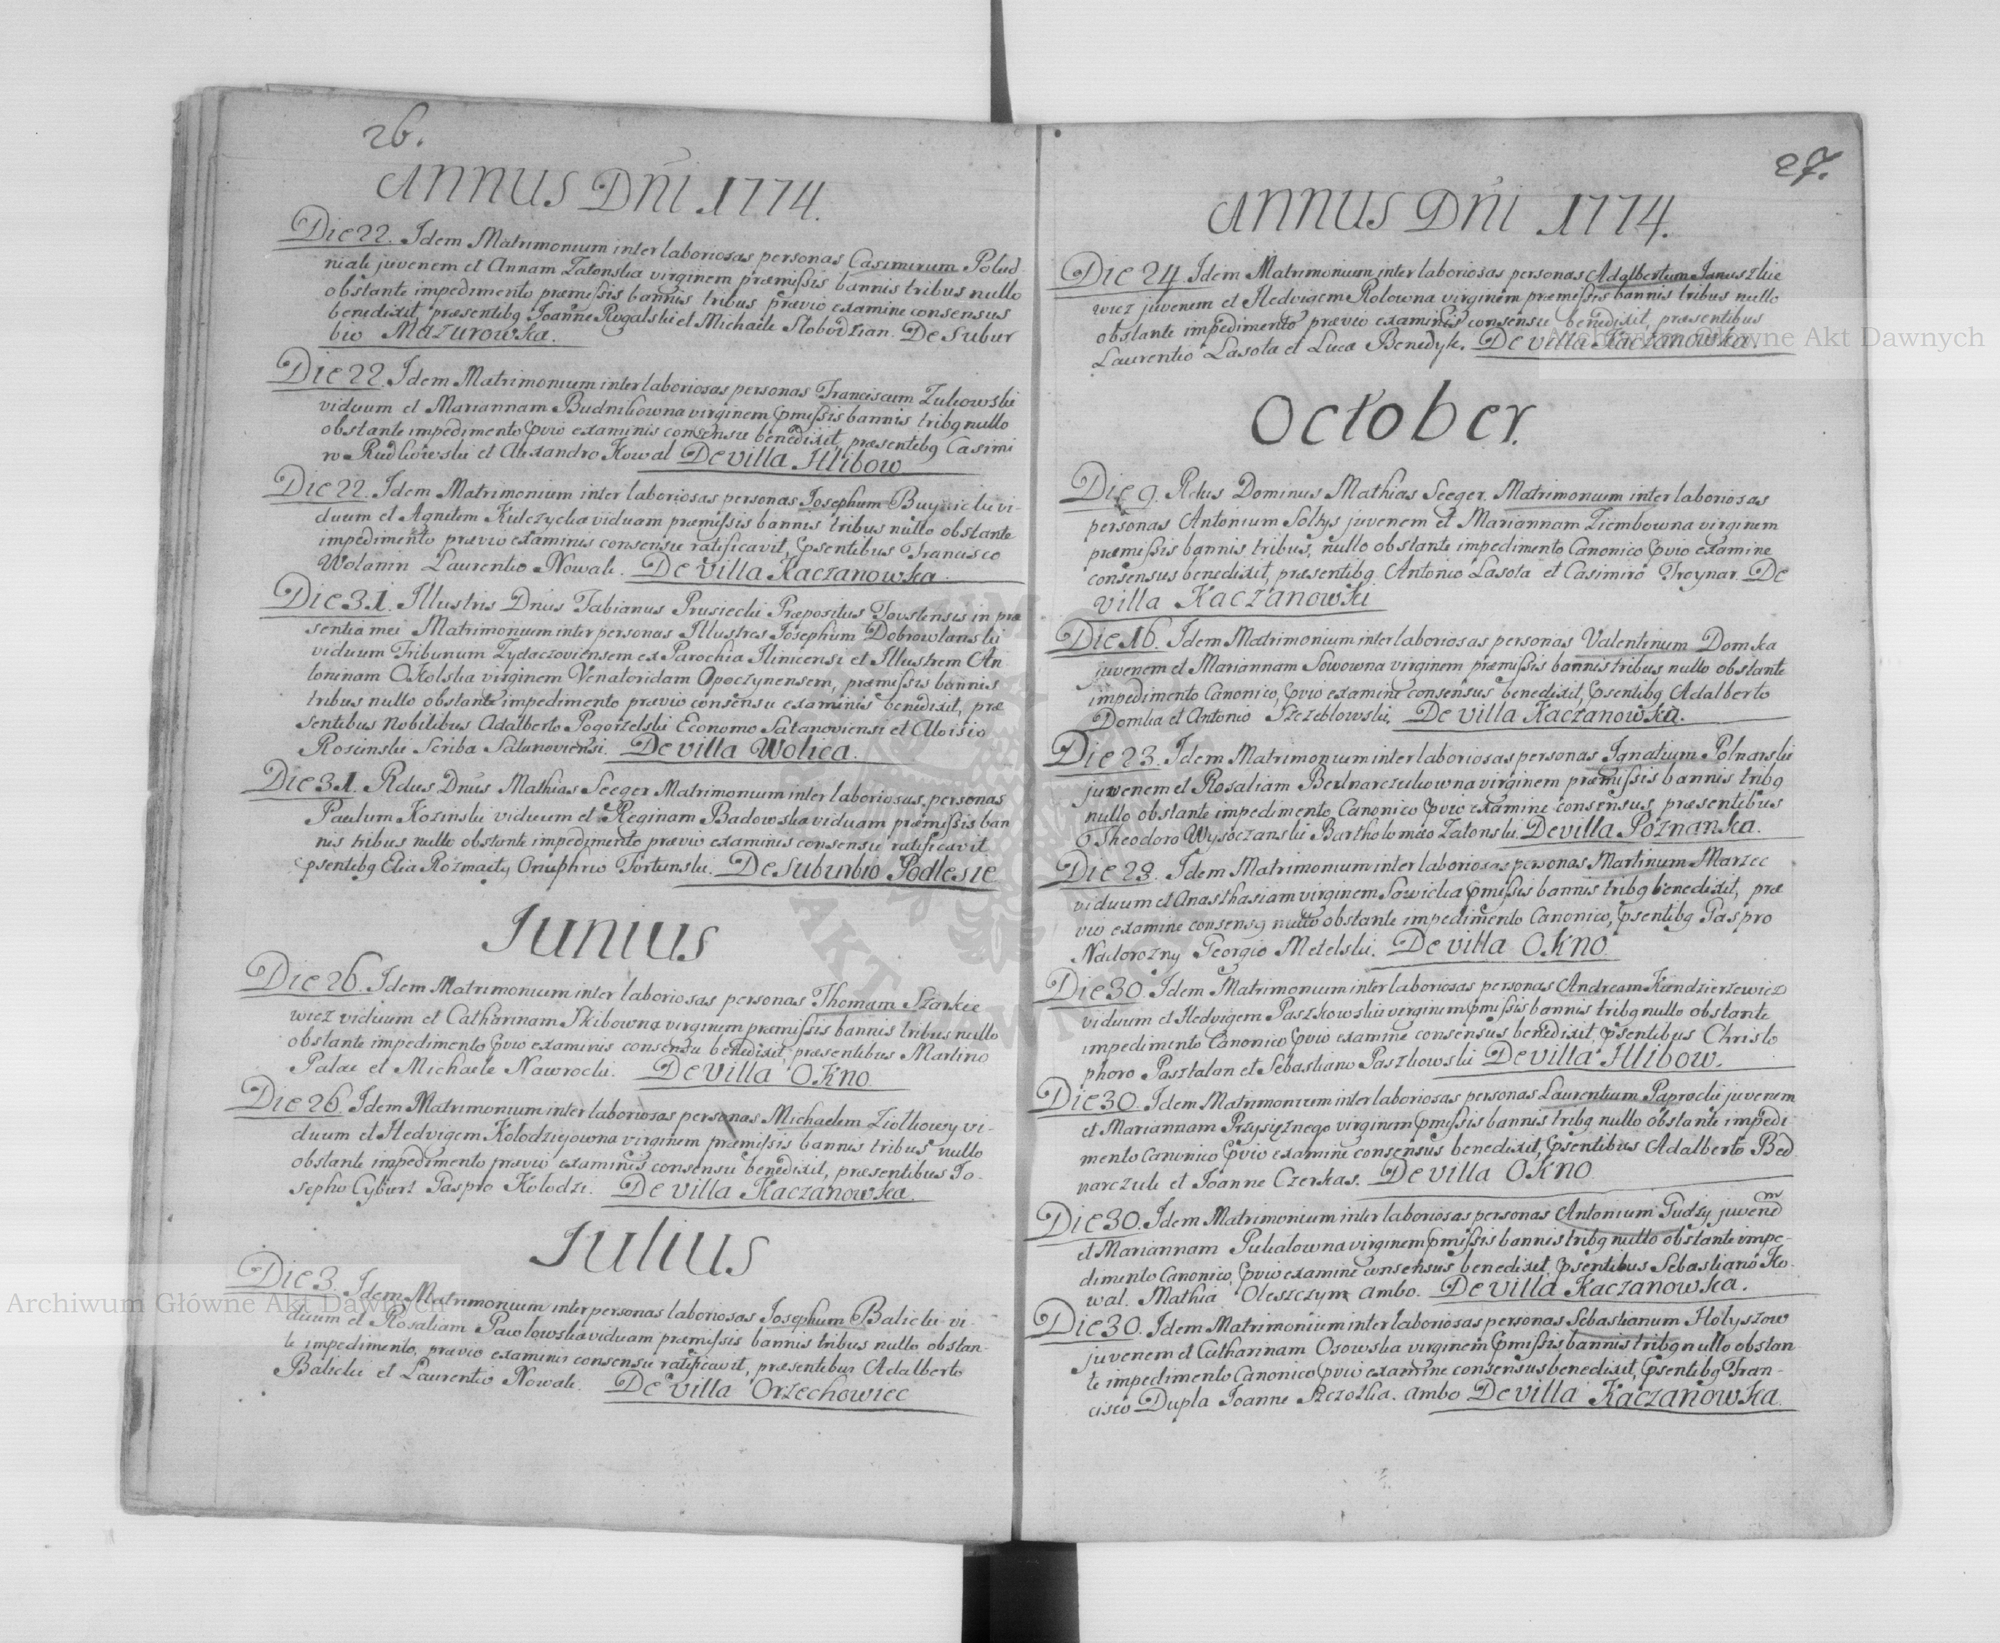 26.
ANNUS DNI 1774.
Die 22. Idem Matrimonium inter laboriosas personas Casimirum Polud
niak juvenem et Annam Zatonska virginem præmissis bannis tribus nullo
obstante impedimento præmissis bannis tribus prævio examine consensus
benedixit, præsentibq Joanne Rogalski et Michaele Slobodzian. De Subur
bio Mazurowka.
Die 22. Idem Matrimonium inter laboriosas personas Franciscum Zukowski
viduum et Mariannam Budnikowna virginem pmissis bannis tribq nullo
obstante impedimento pvio examinis consensu benedixit, præsentibq Casimi
ro Rudkowski et Alexandro Kowal De villa Hlibow
Die 22. Idem Matrimonium inter laboriosas personas Iosephum Buynicki vi-
duum et Agnetem Kulczycka viduam præmissis bannis tribus nullo obstante
impedimento prævio examinis consensu ratificavit, psentibus Francisco
Wolanin Laurentio Nowak. De Villa Kaczanowka.
Die 31. Illustris Dnus Fabianus Prusiecki Præpositus Toustensis in præ
sentia mei Matrimonium inter personas Illustres Iosephum Dobrowlanski
viduum Tribunum Zydaczoviensem ex Parochia Ilincensi et Illustrem An-
toninam OKolska virginem Venatoridam Opoczynensem, præmissis bannis
tribus nullo obstante impedimento prævio consensu examinis benedixit, præ
sentibus Nobilibus Adalberto Pogorzelski Economo Satanoviensi et Aloisio
Rosinski Scriba Satanoviensi. De villa Wolica.
Die 31. Rdus Dnus Mathias Seeger Matrimonium inter laboriosus personas
Paulum Kosinski viduum et Reginam Badowska viduam præmissis ban
nis tribus nullo obstante impedimento prævio examinis consensu ratificavit
psentibq Elia Rozmaity Onuphrio Fortunski. De Suburbio Podlesie
Iunius
Die 26. Idem Matrimonium inter laboriosas personas Thomam Szarkie
wicz viduum et Catharinam Skibowna virginem præmissis bannis tribus nullo
obstante impedimento pvio examinis consensu benedixit, præsentibus Martino
Palac et Michaele Nawrocki. De villa OKno
Die 26 Idem Matrimonium inter laboriosas personas Michaelem Ziolkowy vi-
duum et Hedvigem Kolodzieyowna virginem præmissis bannis tribus nullo
obstante impedimento prævio examinis consensu benedixit, præsentibus Io-
sepho Cybart Gaspro Kolodzi. De villa Kaczanowka.
Iulius
Die 3. Idem Matrimonium inter personas laboriosas Iosephum Balicki vi-
duum et Rosaliam Pawlowska viduam præmissis bannis tribus nullo obstan-
te impedimento, prævio examinis consensu ratificavit, præsentibus Adalberto
Balicki et Laurentio Nowak. De villa Orzechowiec
27.
ANNUS DNI 1774.
Die 24. Idem Matrimonium inter laboriosas personas Adalbertum Januszkie
wicz juvenem et Hedvigem Rolowna virginem præmissis bannis tribus nullo
obstante impedimento prævio examinis consensu benedixit, præsentibus
Laurentio Lasota et Luca Benedyk. De villa Kaczanowka.
October.
Die 9. Rdus Dominus Mathias Seeger. Matrimonium inter laboriosas
personas Antonium Soltys juvenem et Mariannam Ziembowna virginem
præmissis bannis tribus, nullo obstante impedimento Canonico pvio examine
consensus benedixit, præsentibq Antonio Lasota et Casimiro Troynar. De
villa Kaczanowki
Die 16. Idem Matrimonium inter laboriosas personas Valentinum Domka
juvenem et Mariannam Sowowna virginem præmissis bannis tribus nullo obstante
impedimento Canonico, pvio examine consensus benedixit, psentibq Adalberto
Domka et Antonio Szczeblowski, De villa Kaczanowka.
Die 23. Idem Matrimonium inter laboriosas personas Ignatium Polnanski
juvenem et Rosaliam Bednarczukowna virginem præmissis bannis tribq
nullo obstante impedimento Canonico pvio examine consensus, præsentibus
Theodoro Wysoczanski Bartholomæo Zatonski. De villa Poznanka.
Die 23. Idem Matrimonium inter laboriosas personas Martinum Marzec
viduum et Anasthasiam virginem Sawicka pmissis bannis tribq benedixit, præ
vio examine consensq nullo obstante impedimento Canonico, psentibq Gaspro
Nadorozny Georgio Metelski. De villa OKno
Die 30. Idem Matrimonium inter laboriosas personas Andream Kandzierzewicz
viduum et Hedvigem Paszkowska virginem pmissis bannis tribq nullo obstante
impedimento Canonico pvio examine consensus benedixit, psentibus Christo
phoro Pasztalon et Sebastiano Paszkowski De villa Hlibow.
Die 30. Idem Matrimonium inter laboriosas personas Laurentium Paprocki juvenem
et Mariannam Przysiężnego virginem pmissis bannis tribq nullo obstante impedi-
mento Canonico pvio examine consensus benedixit, psentibus Adalberto Bed
narczuk et Ioanne Czerkas. De villa OKno
Die 30. Idem Matrimonium inter laboriosas personas Antonium Gudzy juvenem
et Mariannam Pukalowna virginem pmissis bannis tribq nullo obstante impe-
dimento Canonico, pvio examine consensus benedixit, psentibus Sebastiano Ko-
wal. Mathia Oleszczym ambo. De villa Kaczanowka.
Die 30. Idem Matrimonium inter laboriosas personas Sebastianum Holyszow
juvenem et Catharinam Osowska virginem pmissis bannis tribq nullo obstan
te impedimento Canonico pvio examine consensus benedixit, psentibq Fran-
cisco Dupla Ioanne Szczotka. ambo De villa Kaczanowka.
Archiwum Główne Akt Dawnych
Archiwum Główne Akt Dawnych